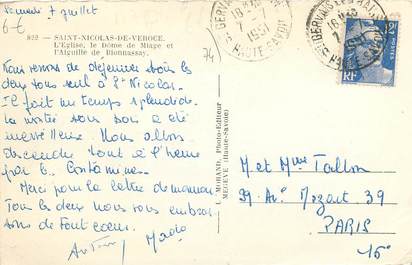 Samedi 7 juillet
6-€
822 — SAINT-NICOLAS-DE-VEROCE.
L'Eglise, le Dôme de Miage et
l'Aiguille de Bionnassay.
Nous venons de déjeuner tous les
deux tous seul à St Nicolas.
Il fait un temps splendide.
La montée sous bois a été
merveilleuse. Nous allons
descendre tout à l'heure
par les Contamines.
Merci pour la lettre de maman
Tous les deux nous vous embras
sons de tout cœur.
Mado
MORAND, Photo-Editeur
MEGÈVE (Haute-Savoie)
74
1951
HAUTE-SAVOIE
RF
M et Mme Tallon
39 Av. Mozart 39
PARIS
16e